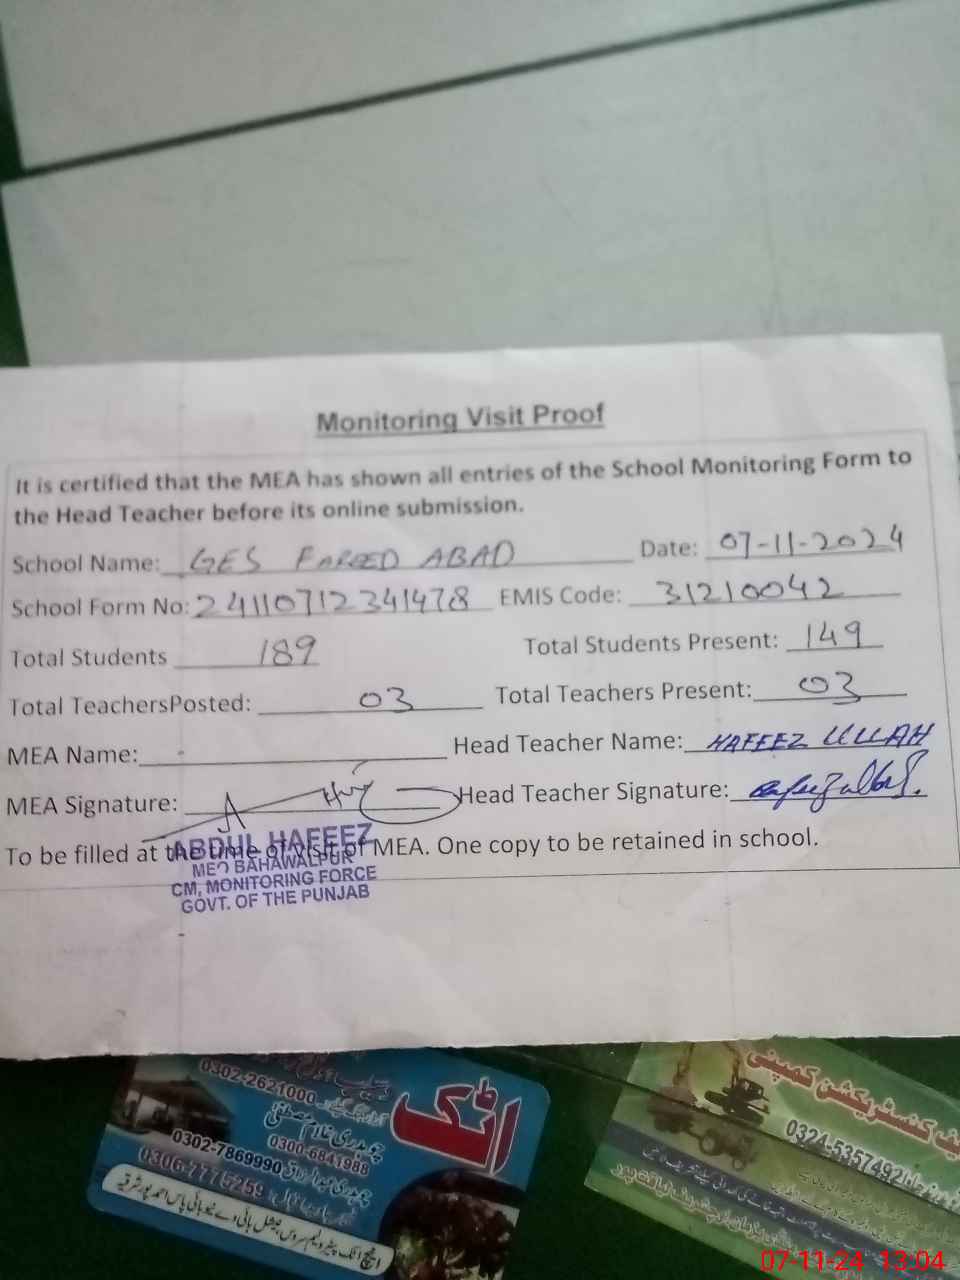 Monitoring Visit Proof
It is certified that the MEA has shown all entries of the School Monitoring Form to
the Head Teacher before its online submission.
School Name: GES FAREED ABAD Date: 07-11-2024
School Form No: 24110712341478 EMIS Code: 31210042
Total Students 189 Total Students Present: 149
Total TeachersPosted: 03 Total Teachers Present: 03
MEA Name: Head Teacher Name: HAFEEZ ULLAH
MEA Signature: Head Teacher Signature:
To be filled at the time of visit of MEA. One copy to be retained in school.
ABDUL HAFEEZ
MEO BAHAWALPUR
CM, MONITORING FORCE
GOVT. OF THE PUNJAB
اٹک
0302-2621000
چوہدری غلام مصطفیٰ
0300-6841988
0302-7869990
0306-7775259
کنسٹریکشن کمپنی
0324-5357492
07-11-24 13:04